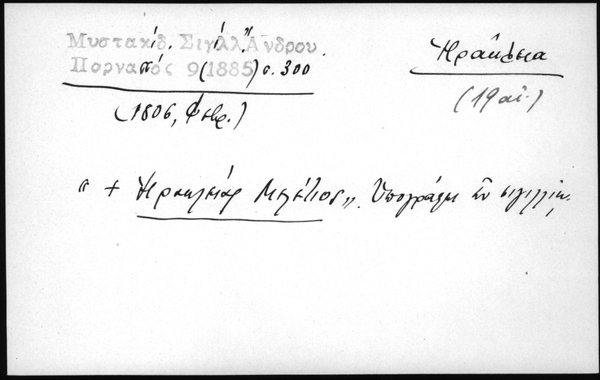 Μυστακίδ. Σιγίλλ. Ἄνδρου.
Παρνασσός 9(1885) σ. 300
(1806, Φεβρ.)
Ἡράκλεια
(19 αἰ.)
"+ Ἡρακλείας Μελέτιος„. Ὑπογράφει ἐν σιγιλλίῳ.